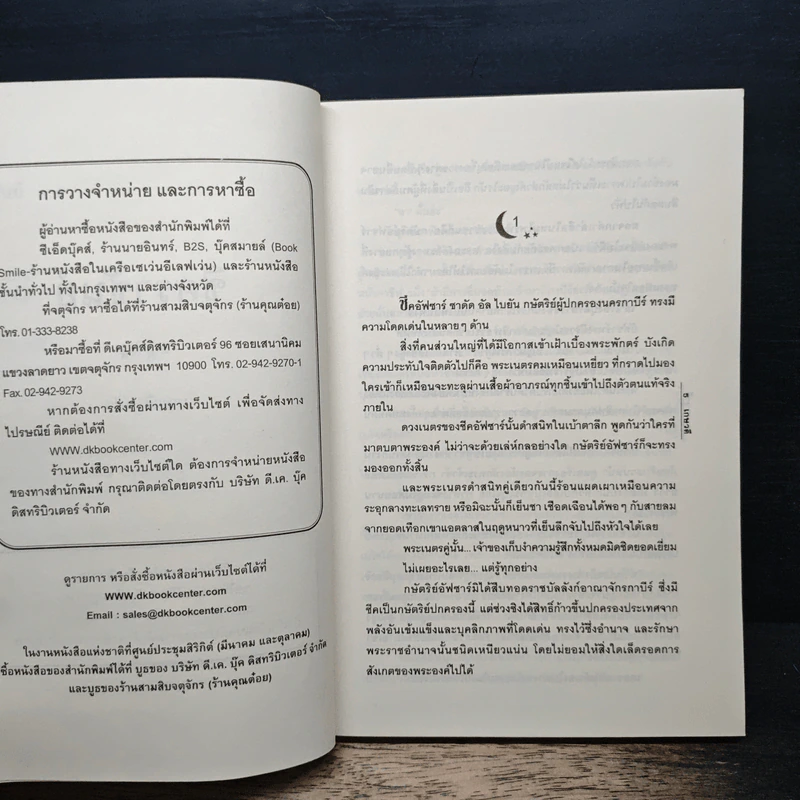 การวางจำหน่าย และการหาซื้อ
ผู้อ่านหาซื้อหนังสือของสำนักพิมพ์ได้ที่
ซีเอ็ดบุ๊คส์, ร้านนายอินทร์, B2S, บุ๊คสมายล์ (Book
Smile-ร้านหนังสือในเครือเซเว่นอีเลฟเว่น) และร้านหนังสือ
ชั้นนำทั่วไป ทั้งในกรุงเทพฯ และต่างจังหวัด
ที่จตุจักร หาซื้อได้ที่ร้านสามสิบจตุจักร (ร้านคุณต๋อย)
โทร. 01-333-8238
หรือมาซื้อที่ ดีเคบุ๊คส์ดิสทริบิวเตอร์ 96 ซอยเสนานิคม
แขวงลาดยาว เขตจตุจักร กรุงเทพฯ 10900 โทร. 02-942-9270-1
Fax. 02-942-9273
หากต้องการสั่งซื้อผ่านทางเว็บไซต์ เพื่อจัดส่งทาง
ไปรษณีย์ ติดต่อได้ที่
WWW.dkbookcenter.com
ร้านหนังสือทางเว็บไซต์ใด ต้องการจำหน่ายหนังสือ
ของทางสำนักพิมพ์ กรุณาติดต่อโดยตรงกับ บริษัท ดี.เค. บุ๊ค
ดิสทริบิวเตอร์ จำกัด
ดูรายการ หรือสั่งซื้อหนังสือผ่านเว็บไซต์ได้ที่
WWW.dkbookcenter.com
Email : sales@dkbookcenter.com
ในงานหนังสือแห่งชาติที่ศูนย์ประชุมสิริกิต์ (มีนาคม และตุลาคม)
ซื้อหนังสือของสำนักพิมพ์ได้ที่ บูธของ บริษัท ดี.เค. บุ๊ค ดิสทริบิวเตอร์ จำกัด
และบูธของร้านสามสิบจตุจักร (ร้านคุณต๋อย)
1
ชีคอัฟซาร์ ซาดัด อัล ไบยัน กษัตริย์ผู้ปกครองนครกาบีร์ ทรงมี
ความโดดเด่นในหลายๆ ด้าน
สิ่งที่คนส่วนใหญ่ที่ได้มีโอกาสเข้าเฝ้าเบื้องพระพักตร์ บังเกิด
ความประทับใจติดตัวไปก็คือ พระเนตรคมเหมือนเหยี่ยว ที่กราดไปมอง
ใครเข้าก็เหมือนจะทะลุผ่านเสื้อผ้าอาภรณ์ทุกชิ้นเข้าไปถึงตัวตนแท้จริง
ภายใน
ดวงเนตรของชีคอัฟซาร์นั้นดำสนิทในเบ้าตาลึก พูดกันว่าใครที่
มาตบตาพระองค์ ไม่ว่าจะด้วยเล่ห์กลอย่างใด กษัตริย์อัฟซาร์ก็จะทรง
มองออกทั้งสิ้น
และพระเนตรดำสนิทคู่เดียวกันนี้ร้อนแผดเผาเหมือนความ
ระอุกลางทะเลทราย หรือมิฉะนั้นก็เย็นชา เชือดเฉือนได้พอๆ กับสายลม
จากยอดเทือกเขาแอตลาสในฤดูหนาวที่เย็นลึกจับไปถึงหัวใจได้เลย
พระเนตรคู่นั้น... เจ้าของเก็บงำความรู้สึกทั้งหมดมิดชิดยอดเยี่ยม
ไม่เผยอะไรเลย... แต่รู้ทุกอย่าง
กษัตริย์อัฟซาร์มิได้สืบทอดราชบัลลังก์อาณาจักรกาบีร์ ซึ่งมี
ชีคเป็นกษัตริย์ปกครองนี้ แต่ช่วงชิงได้สิทธิ์ก้าวขึ้นปกครองประเทศจาก
พลังอันเข้มแข็งและบุคลิกภาพที่โดดเด่น ทรงไว้ซึ่งอำนาจ และรักษา
พระราชอำนาจนั้นชนิดเหนียวแน่น โดยไม่ยอมให้สิ่งใดเล็ดรอดการ
สังเกตของพระองค์ไปได้